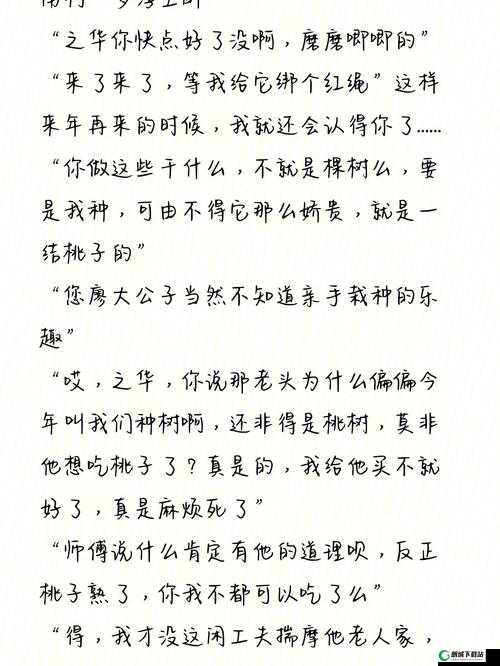 “之华你快点好了没啊，磨磨唧唧的”
“来了来了，等我给它绑个红绳”这样
来年再来的时候，我就还会认得你了......
“你做这些干什么，不就是棵树么，要
是我种，可由不得它那么娇贵，就是一
结桃子的”
“您廖大公子当然不知道亲手栽种的乐
趣”
“哎，之华，你说那老头为什么偏偏今
年叫我们种树啊，还非得是桃树，莫非
他想吃桃子了？真是的，我给他买不就
好了，真是麻烦死了”
“师傅说什么肯定有他的道理呗，反正
桃子熟了，你我不都可以吃了么”
“得，我才没这闲工夫揣摩他老人家，